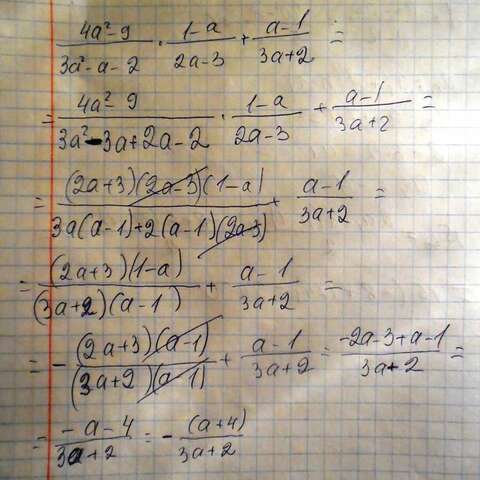 (4a²-9)/(3a²-a-2) · (1-a)/(2a-3) + (a-1)/(3a+2) =
= (4a²-9)/(3a²-3a+2a-2) · (1-a)/(2a-3) + (a-1)/(3a+2) =
= (2a+3)(2a-3)(1-a)/3a(a-1)+2(a-1)(2a-3) + (a-1)/(3a+2) =
= (2a+3)(1-a)/(3a+2)(a-1) + (a-1)/(3a+2) =
= - (2a+3)(a-1)/(3a+2)(a-1) + (a-1)/(3a+2) = (-2a-3+a-1)/(3a+2) =
= (-a-4)/(3a+2) = - (a+4)/(3a+2)